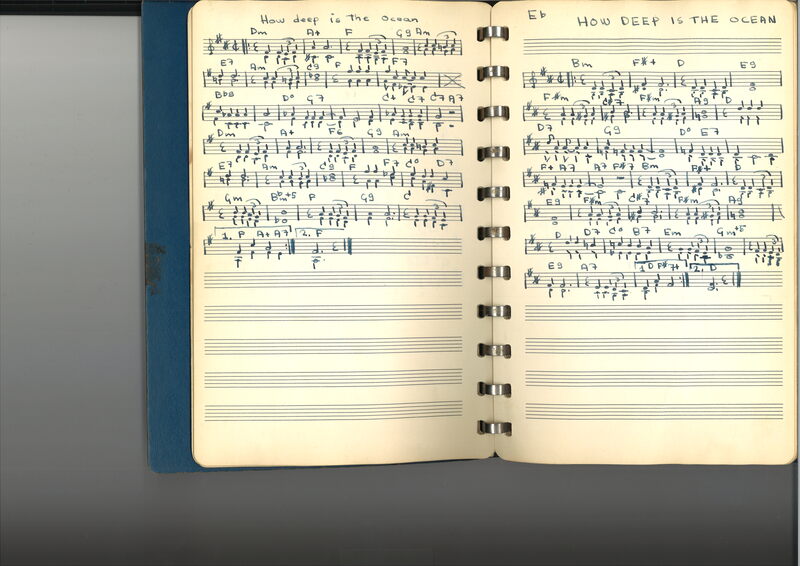 How deep is the ocean
Dm A+ F G9 Am
E7 Am C9 F F7
Bb8 D° G7 C+ C7 C7 A7
Dm A+ F6 G9 Am
E7 Am C9 F F7 C° D7
Gm Bbm+5 F G9 C
1. F A+ A7 2. F
Eb HOW DEEP IS THE OCEAN
Bm F#+ D E9
F#m C#7 F#m A9 D
D7 G9 D° E7
F+ A7 A7 F#7 Bm F#+ D
E9 F#m C#7 F#m A9
D D7 C° B7 Em Gm+5
E9 A7 1. D F#7+ 2. D